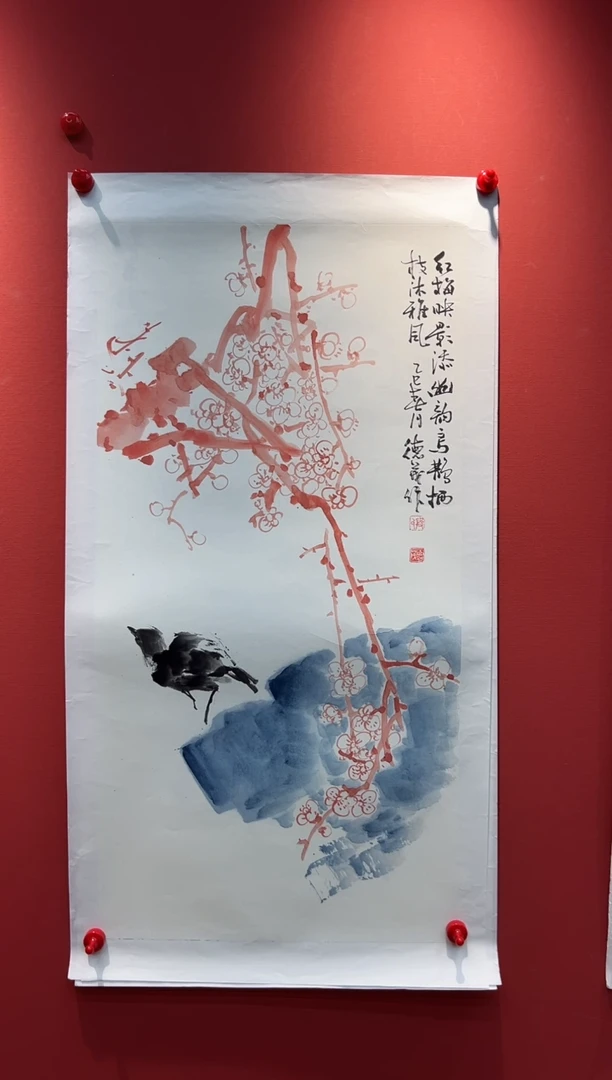 红梅映影添幽韵鸟鹊栖
枝沐雅风 乙巳春月 德 作